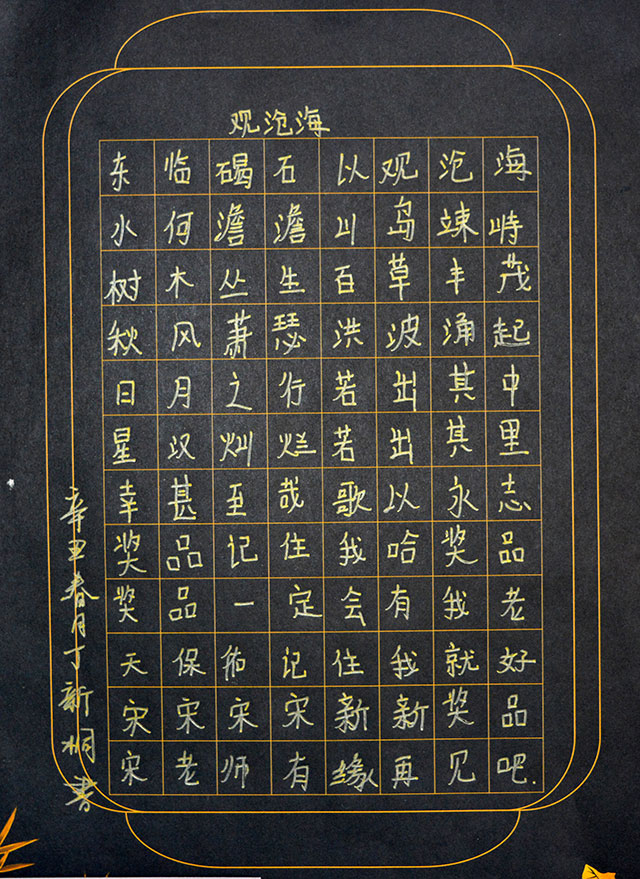 观沧海
东临碣石以观沧海
水何澹澹山岛竦峙
树木丛生百草丰茂
秋风萧瑟洪波涌起
日月之行若出其中
星汉灿烂若出其里
幸甚至哉歌以永志
奖品记住我哈奖品
奖品一定会有我老
天保佑记住我就好
宋宋宋宋新新奖品
宋老师有缘再见吧.
辛丑春月丁新桐书